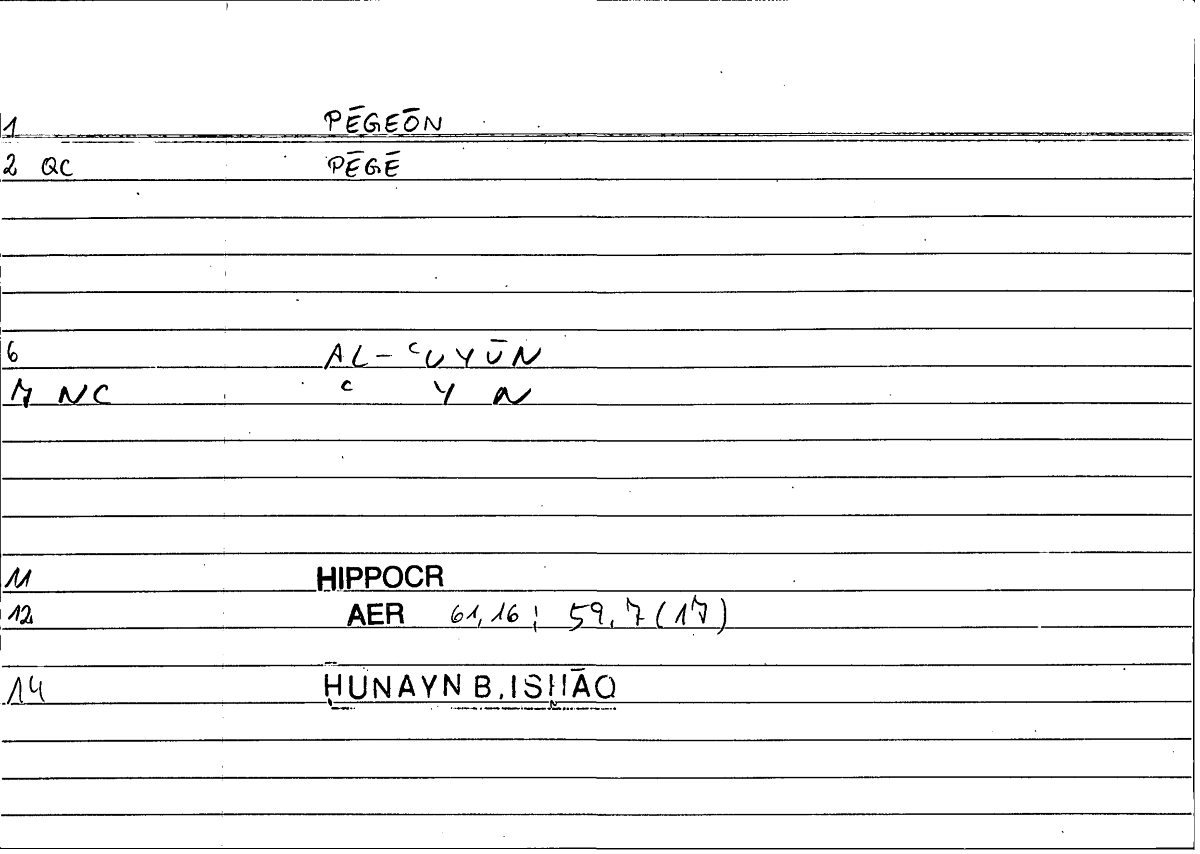 1 PĒGEŌN
2 QC PĒGĒ
6 AL-ʿUYŪN
7 NC ʿ Y N
11 HIPPOCR
12 AER 61,16; 59,7(17)
14 ḤUNAYN B. ISḤĀQ